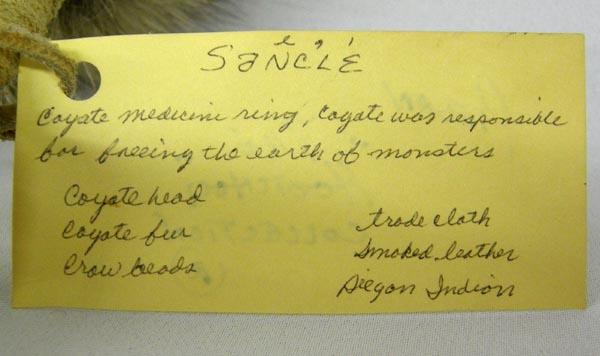 SəNCLÉ
Coyote medicine ring, Coyote was responsible
for freeing the earth of monsters
Coyote head
Coyote fur
Crow beads
trade cloth
Smoked leather
Piegan Indian